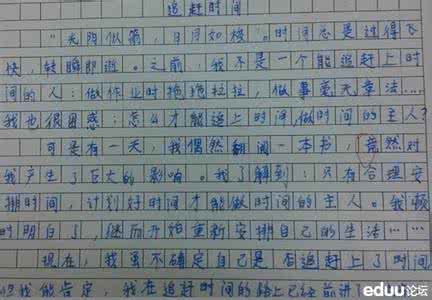 追赶时间
"光阴似箭，日月如梭。"时间总是过得飞
快，转瞬即逝。之前，我不是一个能追赶上时
间的人：做作业时拖拖拉拉，做事毫无章法……
我也很困惑：怎么才能追上的间,做时间的主人？
可是有一天，我偶然翻阅一本书，竟然对
我产生了巨大的影响。我了解到：只有合理安
排时间，计划好时间才能做时间的主人。我顿
时明白了，继而开始重新安排自己的生活……
现在，我虽不确定自己是否追赶上了时间
但我能肯定，我在追赶时间的路上已经前进了
eduu论坛